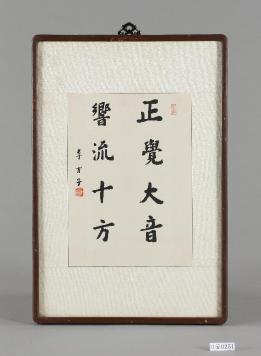 正覺大音
響流十方
李方子